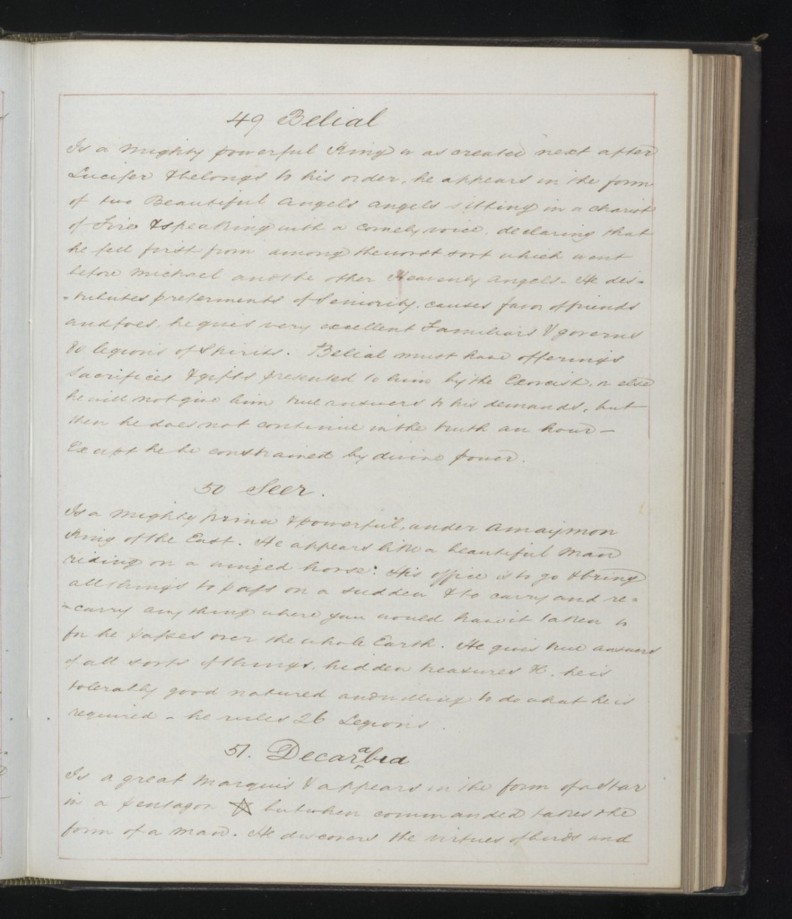 49 Belial
Is a mighty powerful King & as created next after
Lucifer & belongs to his order, he appears in the form
of two Beautiful angels angels sitting in a chariot
of Fire & speaking with a comely voice, declaring that
he fell first from among the worst sort which went
before Michael and the other Heavenly angels - He dis=
=tributes preferments of Seniority, causes favor of friends
and foes, he gives very excellent Familiars & governs
80 legions of Spirits. Belial must have offerings
Sacrifices & gifts presented to him by the Exorcist, or else
he will not give him true answers to his demands, but
then he does not continue in the truth an hour -
Except he be constrained by divine power.
50 Seer.
Is a mighty prince & powerful, under Amaymon
King of the East. He appears like a beautiful man
riding on a winged horse: His office is to go & bring
all things to pass on a sudden & to carry and re=
=carry any thing where you would have it taken to
for he passes over the whole Earth. He gives true answers
of all sorts of things, hidden treasures &c. he is
tolerably good natured and willing to do what he is
required - he rules 26 Legions.
51. Decarabia
Is a great Marquis & appears in the form of a Star
in a pentagon but when commanded takes the
form of a man. He discovers the virtues of birds and